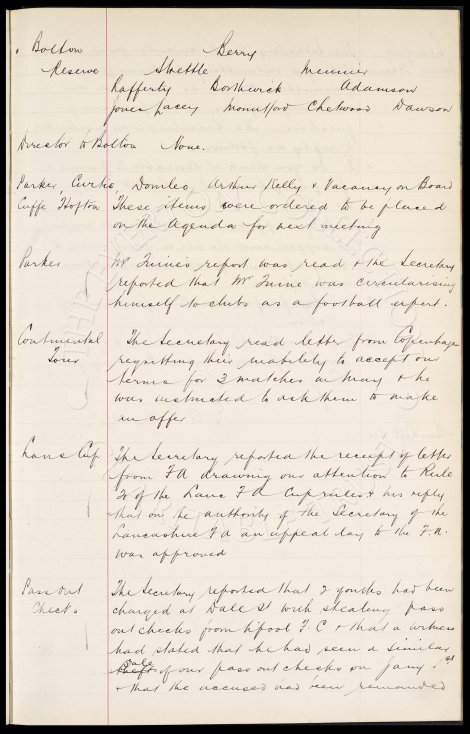 Bolton Berry
Reserve Smettle Meunier
Rafferty Borthwick Adamson
Jones Lacey Mountford Chetwood Dawson
Director to Bolton None.
Parker, Curtis, Domleo, Arthur Kelly & Vacancy on Board
Cuffe Hofton These items were ordered to be placed
on the Agenda for next meeting
Parker Mr report was read & the Secretary
reported that Mr was circularising
himself to clubs as a football expert.
Continental The Secretary read letter from Copenhagen
Tour regretting their inability to accept our
terms for 2 matches in May & he
was instructed to ask them to make
an offer
Lancs Cup The Secretary reported the receipt of letter
from F A drawing our attention to Rule
of the Lancs F A Cup rules & his reply
that on the authority of the Secretary of the
Lancashire F A an appeal day to the F.A.
was approved
Pass out The Secretary reported that 2 youths had been
Checks charged at Dale St with stealing pass
out checks from Lpool F.C & that a witness
had stated that he had seen a similar
sale
theft of our pass out checks on Jany 1st
& that the accused had been remanded